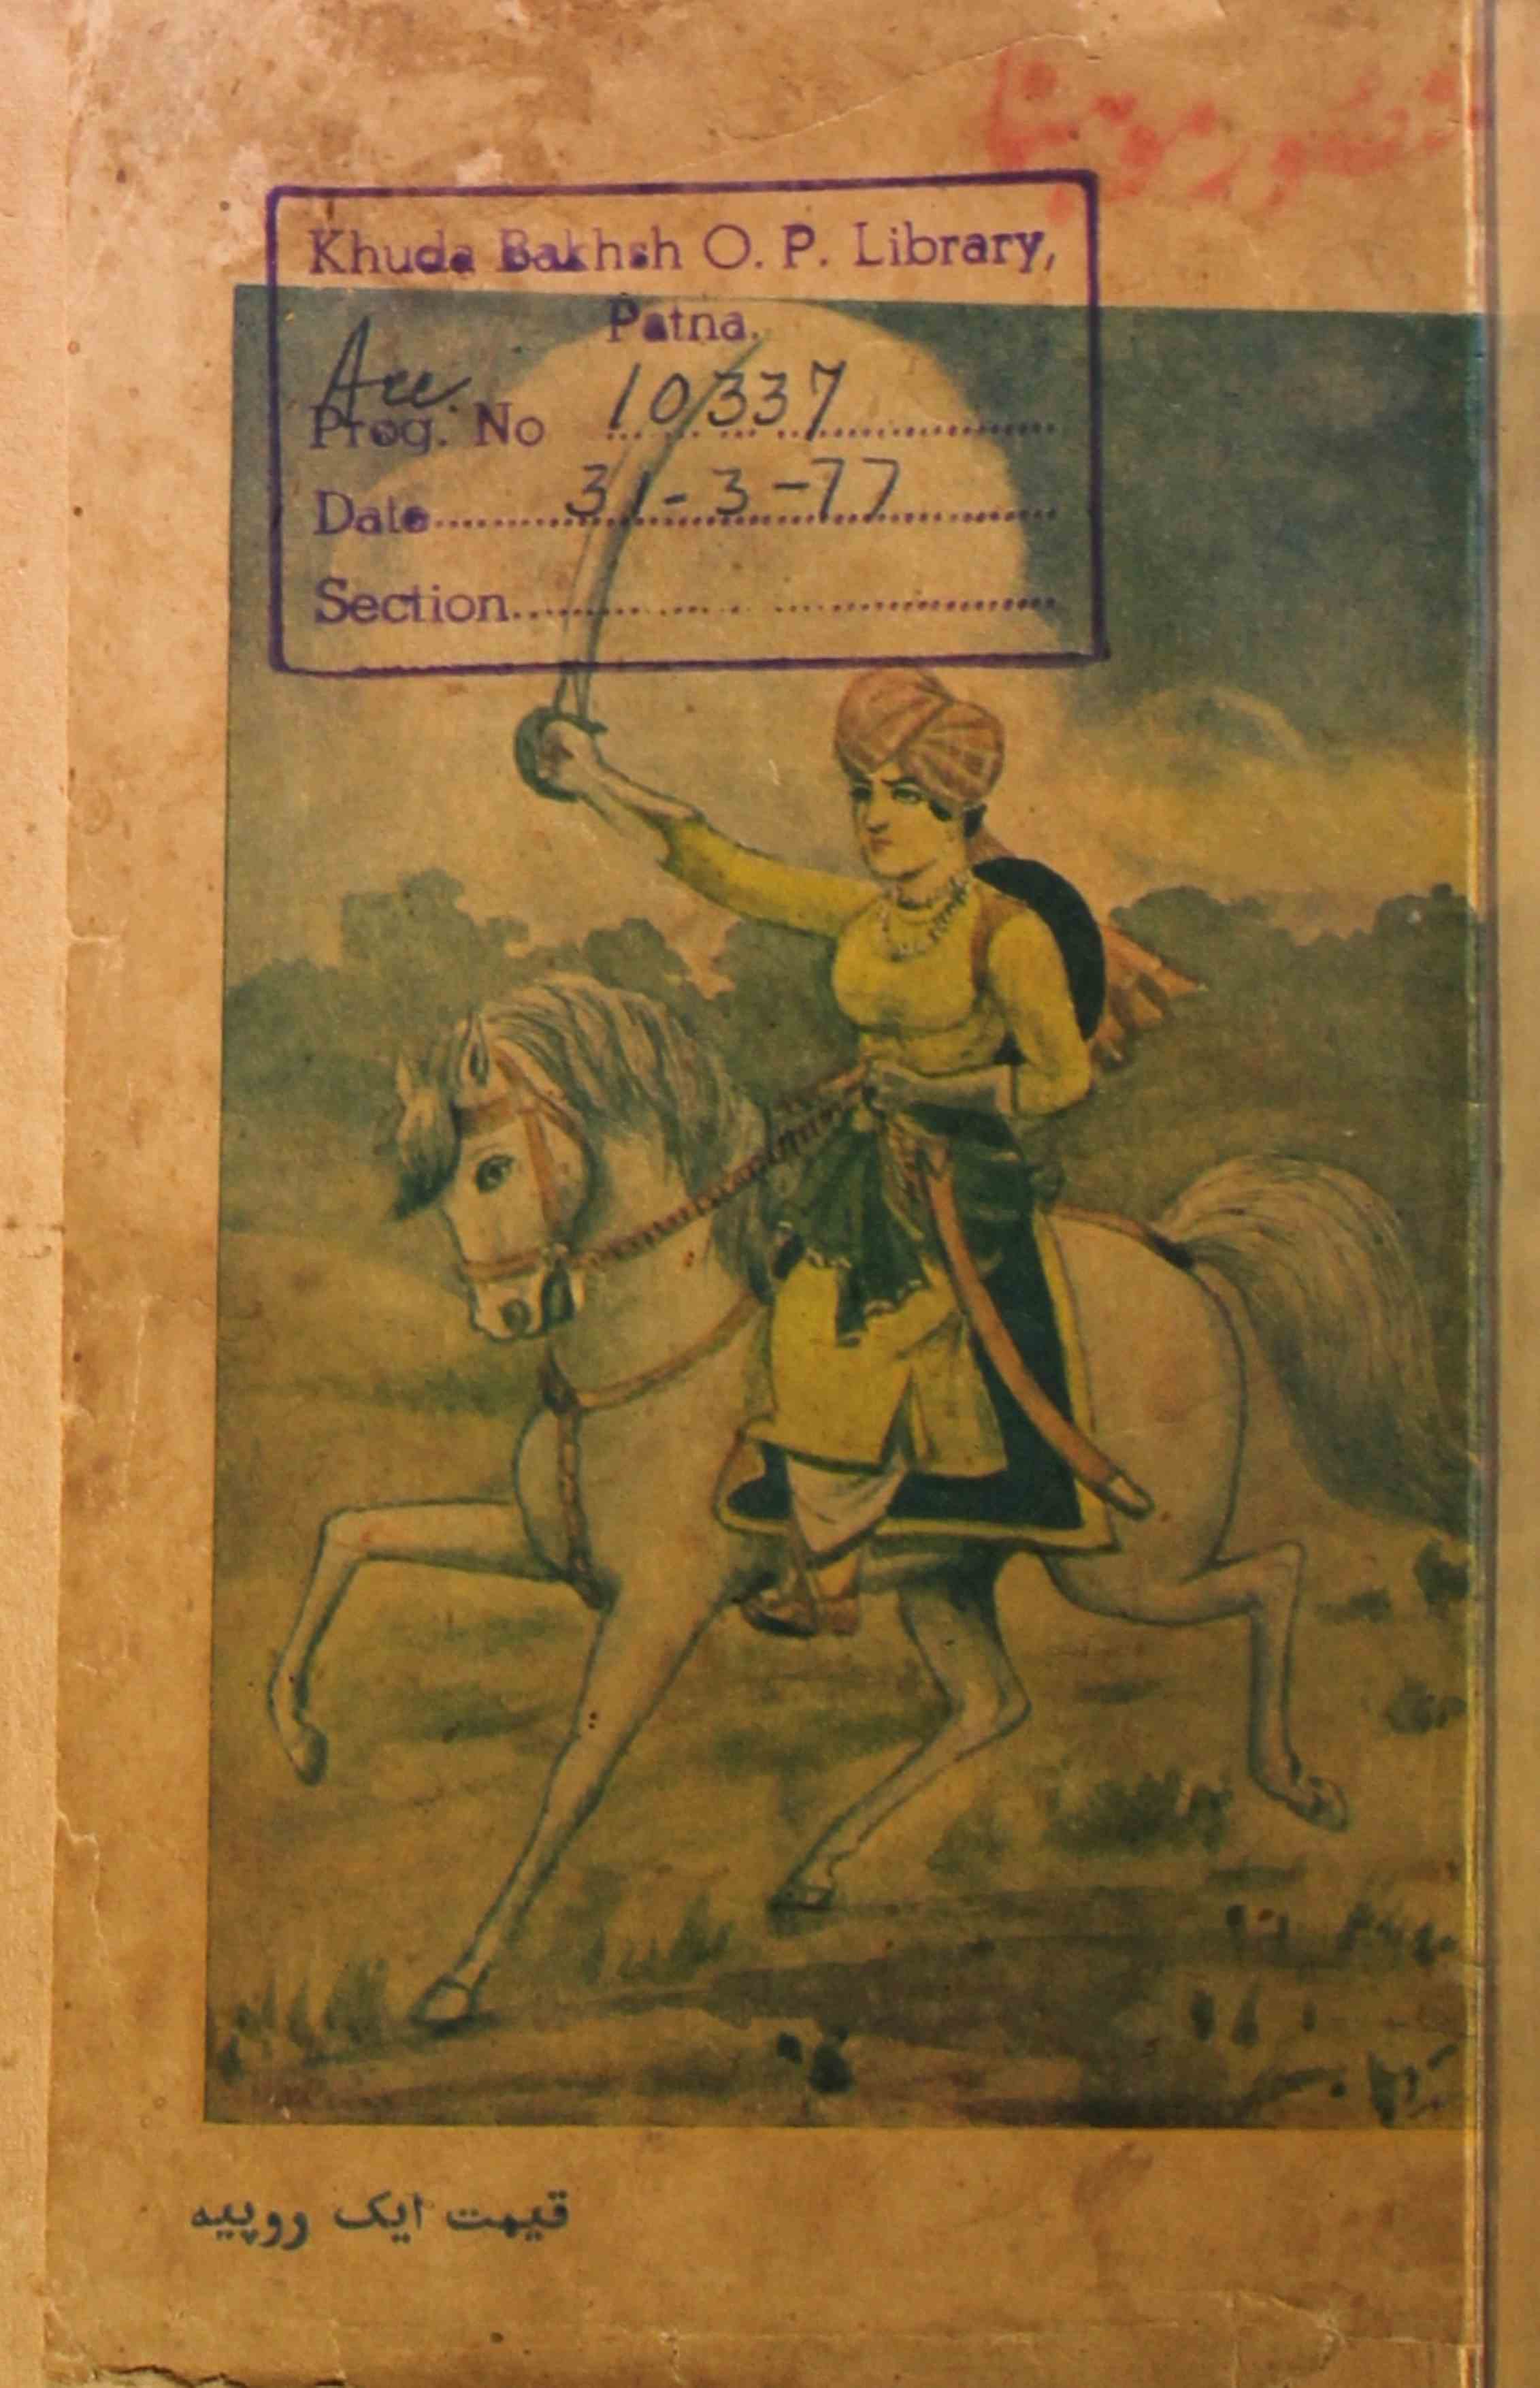 Khuda Bakhsh O. P. Library,
Patna.
Acc.
Prog. No 10337
Date 31-3-77
Section
قیمت ایک روپیہ